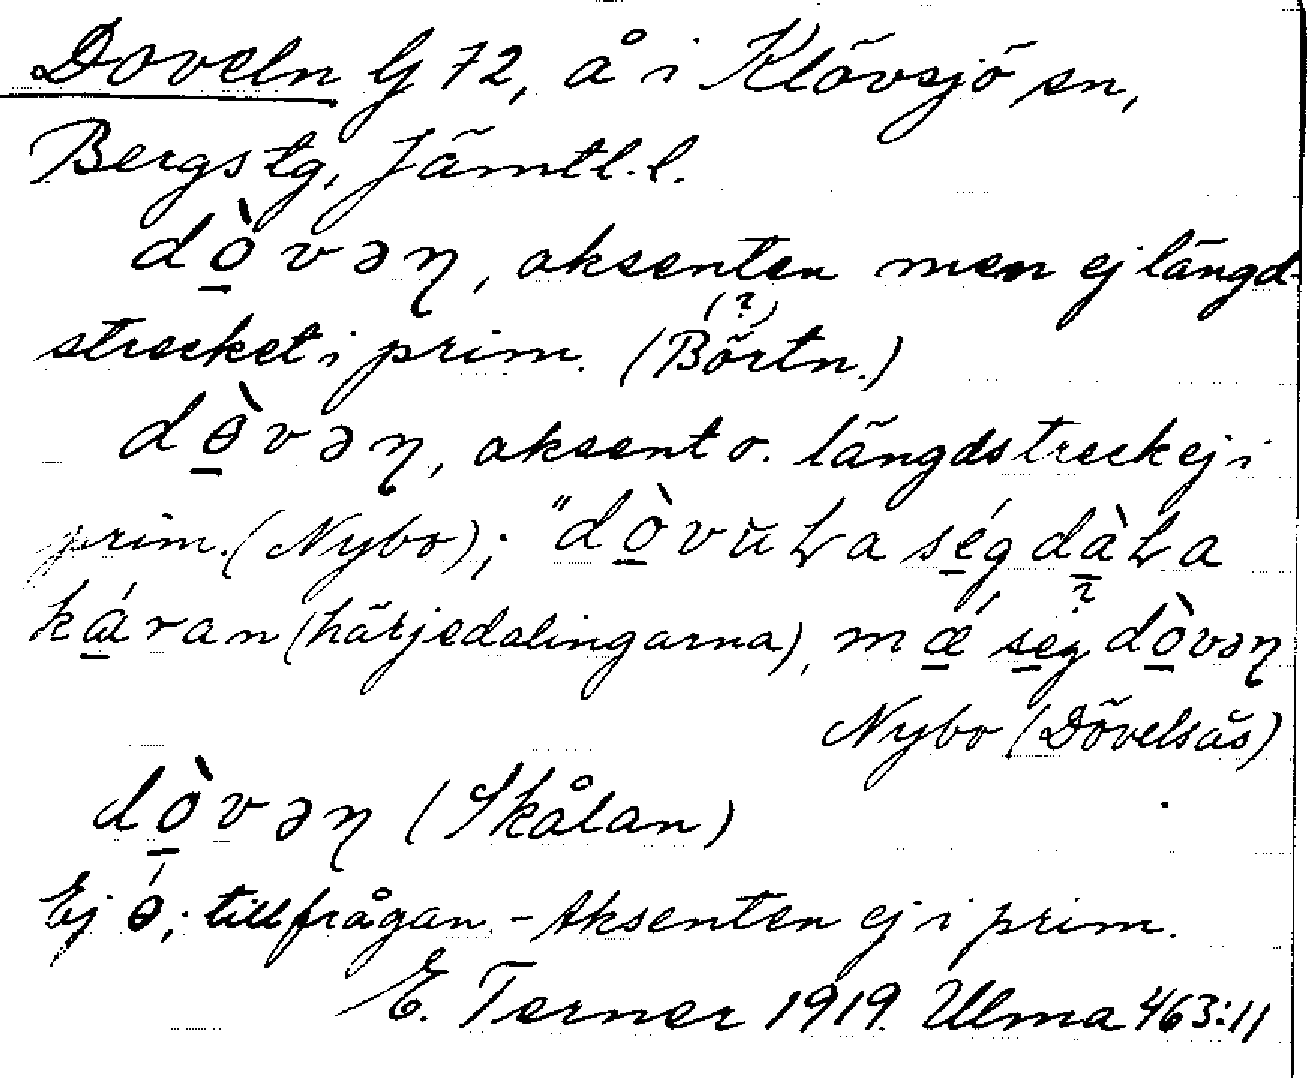 Doveln G 72, å i Klövsjö sn,
Bergs tg, Jämtl. l.
dò̱vəɳ, aksenten men ej längd-
strecket i prim. (Börtn.) (?)
dɵ̱̀vəɳ, aksent o. längdstreck ej i
prim. (Nybo); "dò̱vuɽa sé̱g dà̱ɽa
ká̱ran (härjedalingarna), mǽ̱ se̱g dò̱vəɳ
Nybo (Dövelsås)
dò̱vəɳ (Skålan)
Ej ɵ́; tillfrågan - Aksenten ej i prim.
E. Terner 1919. Ulma 463:11